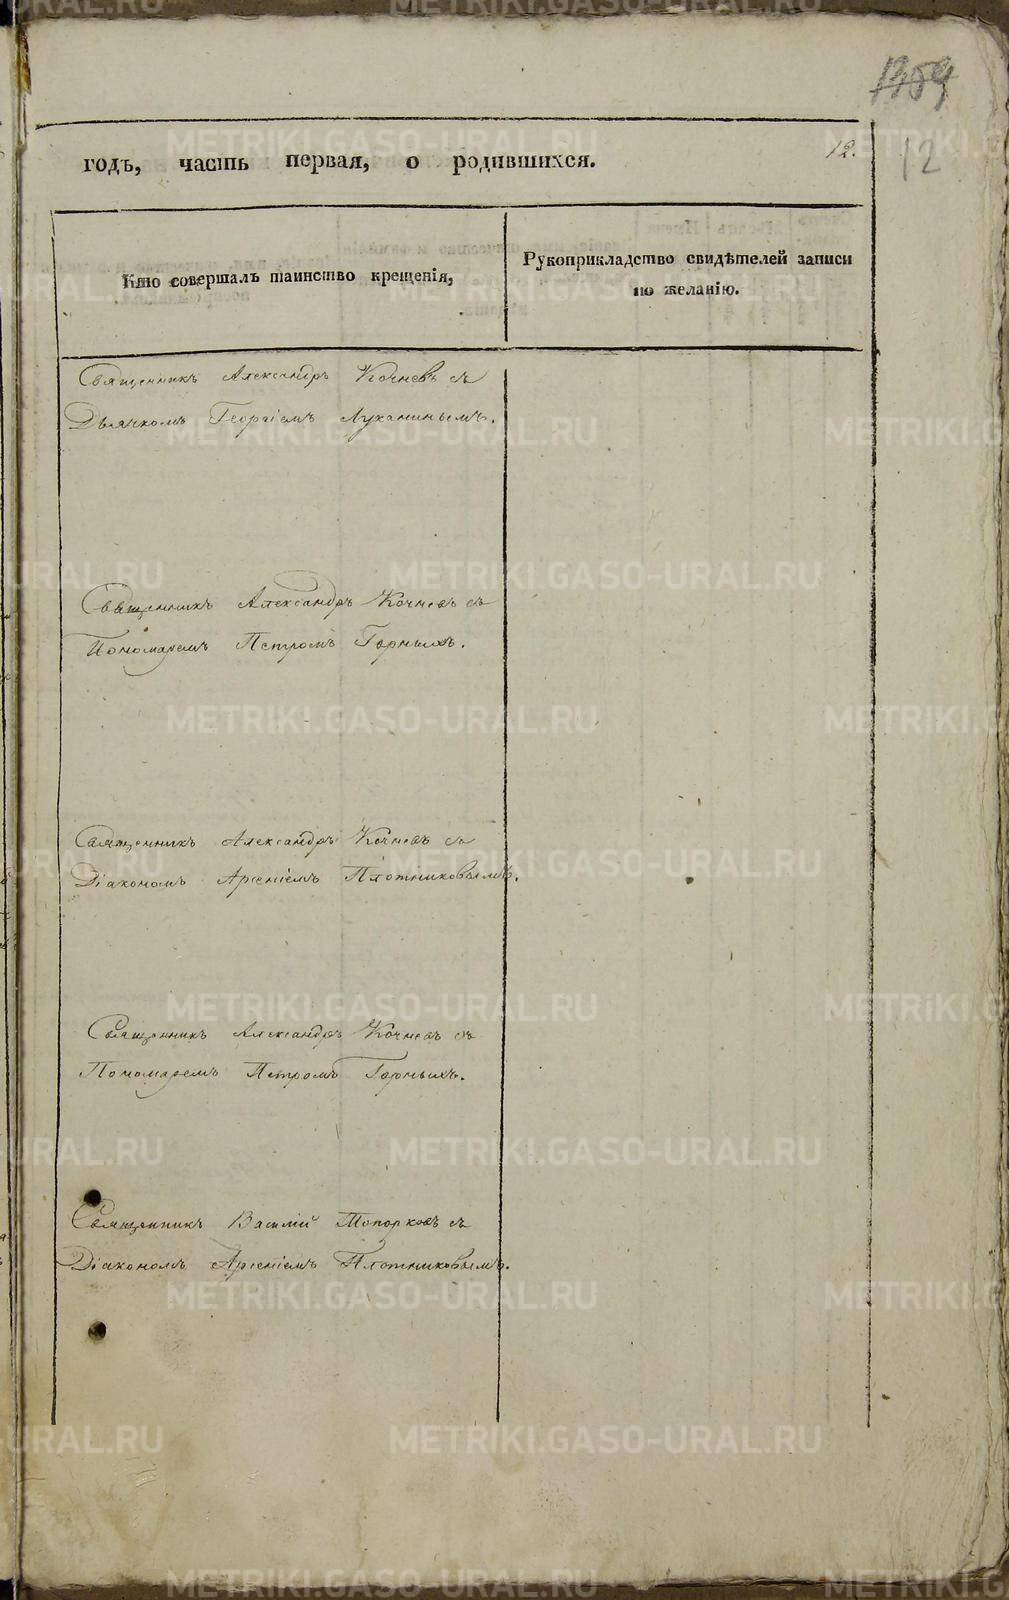 годъ, часть первая, о родившихся.
12.
12
Кто совершалъ таинство крещенія,
Рукоприкладство свидѣтелей записи
по желанію.
Священникъ Александръ Кочневъ съ
Дьячкомъ Георгіемъ Луканинымъ.
Священникъ Александръ Кочневъ съ
Пономаремъ Петромъ Горныхъ.
Священникъ Александръ Кочневъ съ
Діакономъ Арсеніемъ Плотниковымъ.
Священникъ Александръ Кочневъ съ
Пономаремъ Петромъ Горныхъ.
Священникъ Василій Топорковъ съ
Діакономъ Арсеніемъ Плотниковымъ.
METRIKI.GASO-URAL.RU